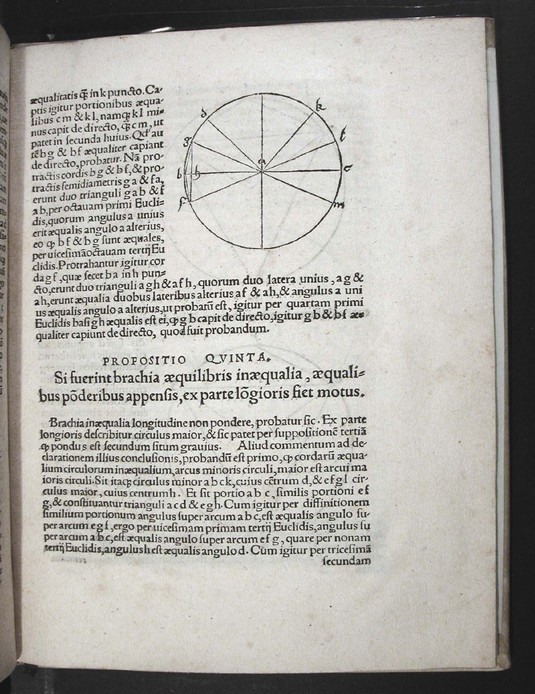 æqualitatis q̃ in k puncto. Ca-
ptis igitur portionibus æqua-
libus c m & k l, namq̃ k l mi-
nus capit de directo, q̃ c m, ut
patet in secunda huius. Qd' au
tẽ b g & b f æqualiter capiant
de directo, probatur. Nã pro-
tractis cordis b g & b f, & pro-
tractis semidiametris g a & f a,
erunt duo trianguli g a b & f
a b, per octauam primi Eucli-
dis, quorum angulus a unius
erit æqualis angulo a alterius,
eo q b f & b g sunt æquales,
per uicesimãoctauam tertij Eu
clidis. Protrahantur igitur cor
da g f, quæ secet b a in h pun-
cto, erunt duo trianguli a g h & a f h, quorum duo latera unius, a g &
a h, erunt æqualia duobus lateribus alterius a f & a h, & angulus a uni
us æqualis angulo a alterius, ut probatũ est, igitur per quartam primi
Euclidis basi g h æqualis est ei, q g b capit de directo, igitur g b & b f æ-
qualiter capiunt de directo, quod fuit probandum.
d
k
g
l
a
b
h
c
f
m
PROPOSITIO QVINTA.
Si fuerint brachia æquilibris inæqualia, æquali-
bus põderibus appensis, ex parte lõgioris fiet motus.
Brachia inæqualia longitudine non pondere, probatur sic. Ex parte
longioris describitur circulus maior, & sic patet per suppositionẽ tertiã
q pondus est secundum situm grauius. Aliud commentum ad de-
clarationem illius conclusionis, probandũ est primo, q cordarũ æqua-
lium circulorum inæqualium, arcus minoris circuli, maior est arcui ma
ioris circuli. Sit itaq circulus minor a b c k, cuius cẽtrum d, & e f g l cir-
culus maior, cuius centrum h. Et sit portio a b c, similis portioni e f
g, & constituantur trianguli a c d & e g h. Cum igitur per diffinitionem
similium portionum angulus super arcum a b c, est æqualis angulo su-
per arcum e g f, ergo per uicesimam primam tertij Euclidis, angulus su
per arcum a b c, est æqualis angulo super arcum e f g, quare per nonam
tertij Euclidis, angulus h est æqualis angulo d. Cũm igitur per tricesimã
secundam